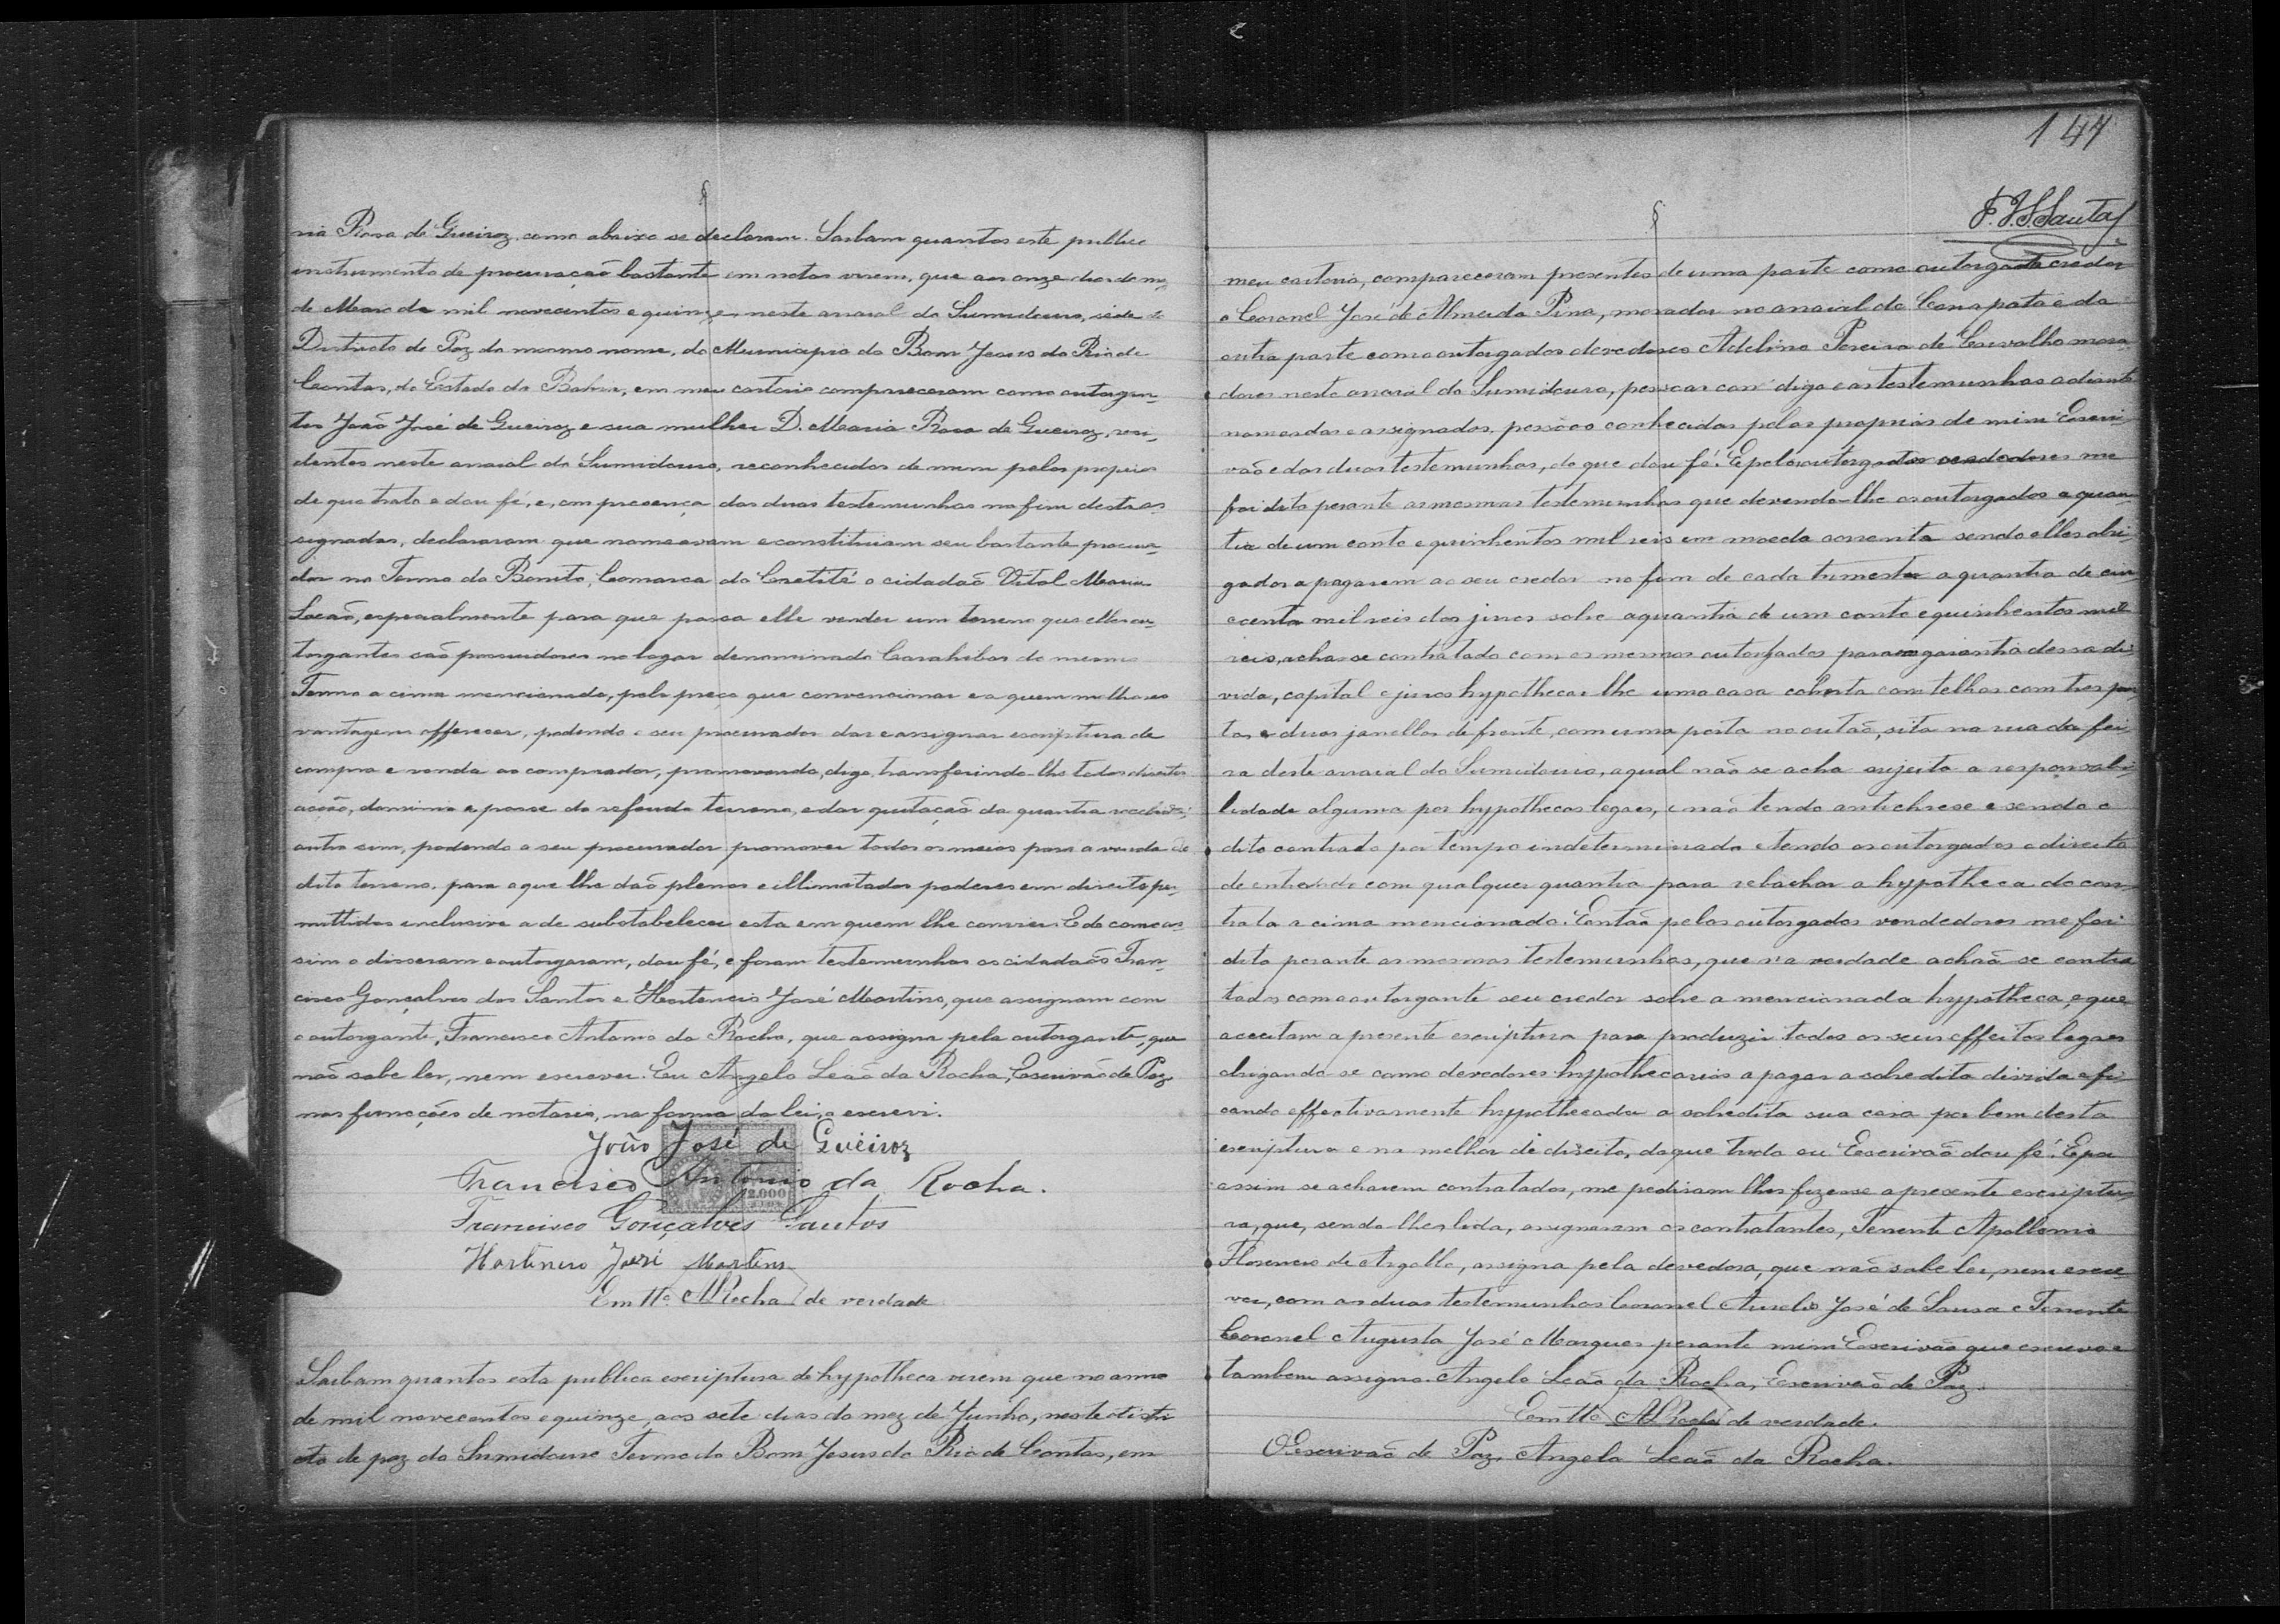 ria Rosa de Gueiroz, como abaixo se declaram. Saibam quantos este publico
instrumento de procuração bastante em notas virem, que aos onze dias do m
de Março de mil novecentos e quinze, neste arraial do Sumidouro, séde do
Districto de Paz do mesmo nome, do Municipio do Bom Jesus do Rio de
Contas, do Estado da Bahia, em meu cartorio compareceram como outorgan-
tes João José de Gueiroz e sua mulher D. Maria Rosa de Gueiroz, resi-
dentes neste arraial do Sumidouro, reconhecidos de mim pelos proprios
de que trato e dou fé, e, em presença das duas testemunhas no fim desta as-
signadas, declararam que nomeavam e constituiam seu bastante procura-
dor no Termo do Bonito, Comarca do Caetité o cidadão Vital Maria
Leão, especialmente para que possa elle vender um terreno que elles ou-
torgantes são possuidores no logar denominado Carahibas do mesmo
Termo a cima mencionado, pelo preço que convencionar e a quem melhores
vantagens offerecer, podendo o seu procurador dar e assignar escriptura de
compra e venda ao comprador, promovendo, digo, transferindo-lhe todos direitos
acção, dominio e posse do referido terreno, e dar quitação da quantia recebida;
outro sim, podendo o seu procurador promover todos os meios para a venda do
dito terreno, para o que lhe dão plenos e illimitados poderes em direito per-
mittidos inclusive a de substabelecer esta em quem lhe convier. E de como as-
sim o disseram e outorgaram, dou fé, e foram testemunhas os cidadãos Fran-
cisco Gonçalves dos Santos e Hortencio José Martins, que assignam com
o outorgante, Francisco Antonio da Rocha, que assigna pela outorgante, que
não sabe ler, nem escrever. Eu Angelo Leão da Rocha, Escrivão de Paz
nas funcções de notario, na forma da lei, o escrevi.
João José de Gueiroz
Francisco Antonio da Rocha.
2.000
Francisco Gonçalves Santos
Hortencio José Martins
Em tto ARocha de verdade
Saibam quantos esta publica escriptura de hypotheca virem que no anno
de mil novecentos e quinze, aos sete dias do mez de Junho, neste distri
cto de paz do Sumidouro Termo do Bom Jesus do Rio de Contas, em
147
F. J. S. Santos
meu cartorio, compareceram presentes de uma parte como outorgante credor
o Coronel José de Almeida Pina, morador no arraial do e da
outra parte como outorgados devedores Adelino Pereira de Carvalho mora
dores neste arraial do Sumidouro, pessoas con digo e as testemunhas adiante
nomeadas e assignadas, pessoas conhecidas pelas proprias de mim Escri
vão e das duas testemunhas, do que dou fé. E pelo outorgados me
foi dito perante as mesmas testemunhas que devendo-lhe os outorgados a quan
tia de um conto e quinhentos mil reis em moeda corrente sendo elles obri
gados a pagarem ao seu credor no fim de cada trimestre a quantia de cin
coenta mil reis dos juros sobre a quantia de um conto e quinhentos mil
reis, achasse contratado com os mesmos outorgados para garantia dessa di
vida, capital e juros hypothecar-lhe uma casa coberta com telhas com tres por
tas e duas janellas de frente, com uma porta no outão, sita na rua da fei
ra deste arraial do Sumidouro, a qual não se acha sujeita a responsabi
lidade alguma por hypothecas legaes, e não tendo antichrese e sendo o
dito contrato por tempo indeterminado e tendo os outorgados o direito
de entrar com qualquer quantia para rebachar a hypotheca do con
trato a cima mencionado. Então pelos outorgados vendedores me foi
dito perante as mesmas testemunhas, que na verdade achão se contra
tados com o outorgante seu credor sobre a mencionada hypotheca, e que
acceitam a presente escriptura para produzir todos os seus effeitos legaes
obrigando se como devedores hypothecarios a pagar a sobredita divida e fi
cando effectivamente hypothecada a sobredita sua casa por bem desta
escriptura e na melhor de direito, do que tudo eu Escrivão dou fé. E por
assim se acharem contratados, me pediram lhes fizesse a presente escriptu
ra, que, sendo lhes lida, assignaram os contratantes, Tenente Apollonio
Florencio de Argollo, assigna pela devedora, que não sabe ler, nem escre
ver, com as duas testemunhas Coronel Aurelio José de Sousa e Tenente
Coronel Augusto José Marques perante mim Escrivão que escrevo e
tambem assigno. Angelo Leão da Rocha, Escrivão de Paz.
Em tto ARocha de verdade.
O Escrivão de Paz, Angelo Leão da Rocha.